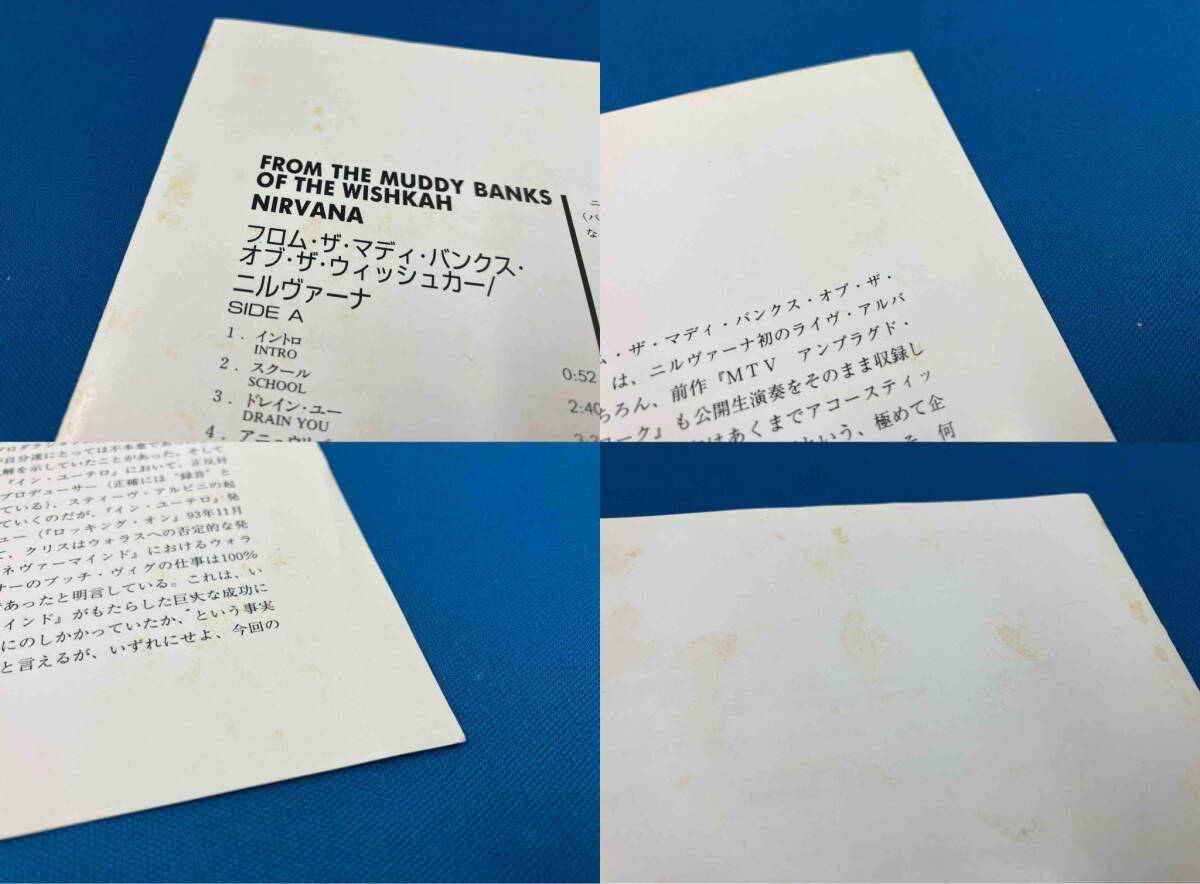 FROM THE MUDDY BANKS
OF THE WISHKAH
NIRVANA
フロム・ザ・マディ・バンクス・
オブ・ザ・ウィッシュカー/
ニルヴァーナ
SIDE A
1. イントロ
INTRO
0:52
2. スクール
SCHOOL
2:40
3. ドレイン・ユー
DRAIN YOU
4.
ニ
(バ
な
ム・ザ・マディ・バンクス・オブ・ザ・
は、ニルヴァーナ初のライヴ・アルバ
ちろん、前作『MTV アンプラグド・
ーク』も公開生演奏をそのまま収録し
はあくまでアコースティッ
いう、極めて企
何
自分達にとっては不本意であ
解を示していたことがあった。そして
『イン・ユーテロ』において、正反対
プロデューサー(正確には“録音”と
ている)、スティーヴ・アルビニの起
ていくのだが、『イン・ユーテロ』発
ュー(『ロッキング・オン』93年11月
て、クリスはウォラスへの否定的な発
ネヴァーマインド』におけるウォラ
サーのブッチ・ヴィグの仕事は100%
であったと明言している。これは、い
インド』がもたらした巨大な成功に
にのしかかっていたか、という事実
と言えるが、いずれにせよ、今回の